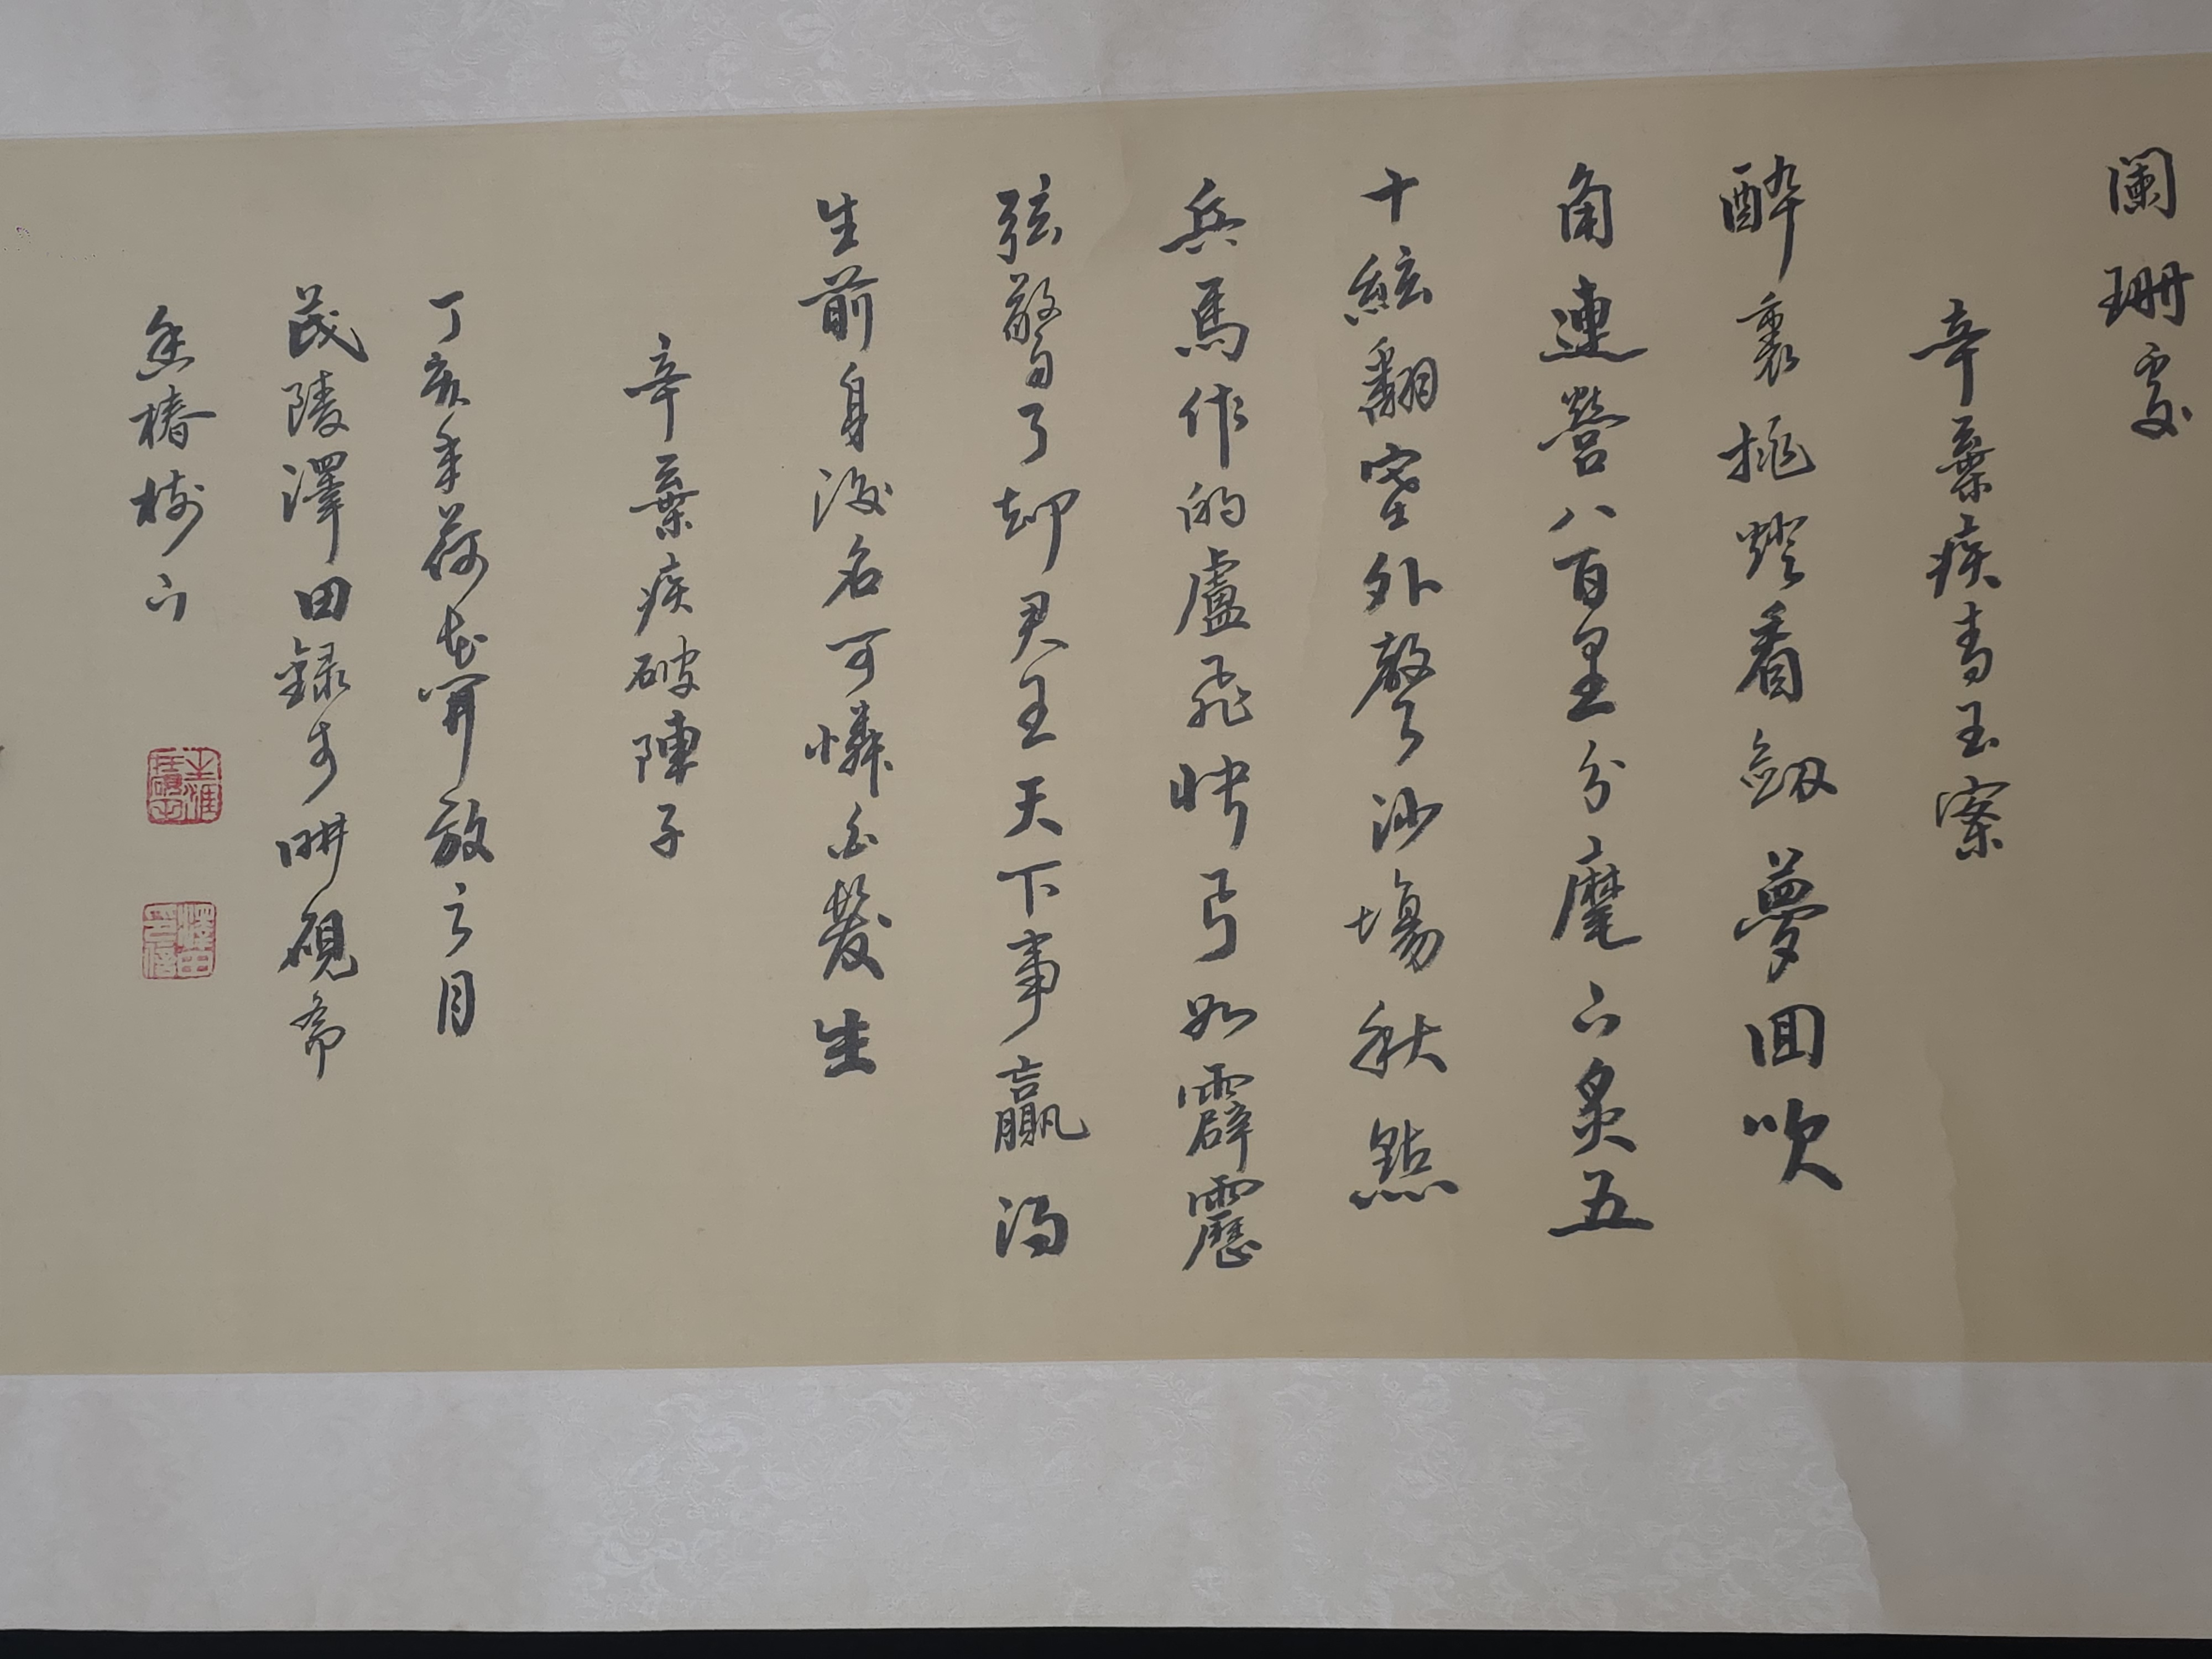 闌珊處
辛棄疾青玉案
醉裏挑燈看劔夢回吹
角連營八百里分麾下炙五
十絃翻塞外聲沙塲秋點
兵馬作的盧飛快弓如霹靂
弦驚了却君王天下事贏得
生前身後名可憐白髮生
辛棄疾破陣子
丁亥年荷花開放之月
茂陵澤田録於耕硯齋
香椿樹下
澤田